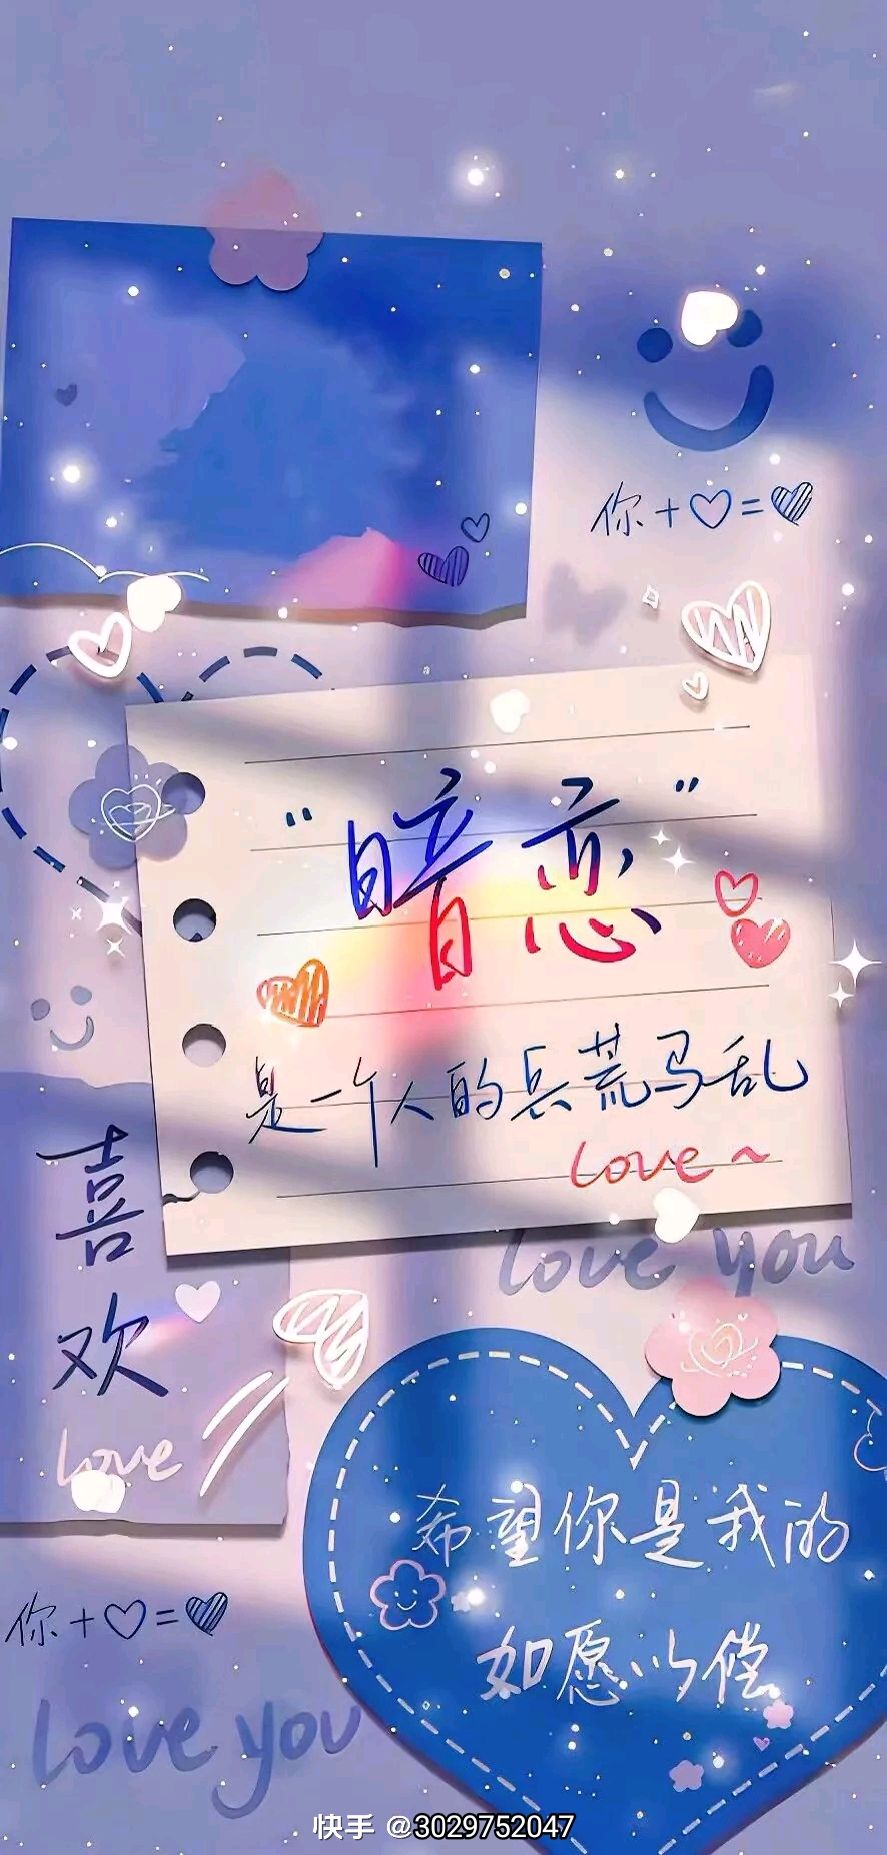 你+♡=♡
“暗恋”
是一个人的兵荒马乱
love~
love you
喜
欢
love
希望你是我的
如愿以偿
你+♡=♡
love you
快手 @3029752047